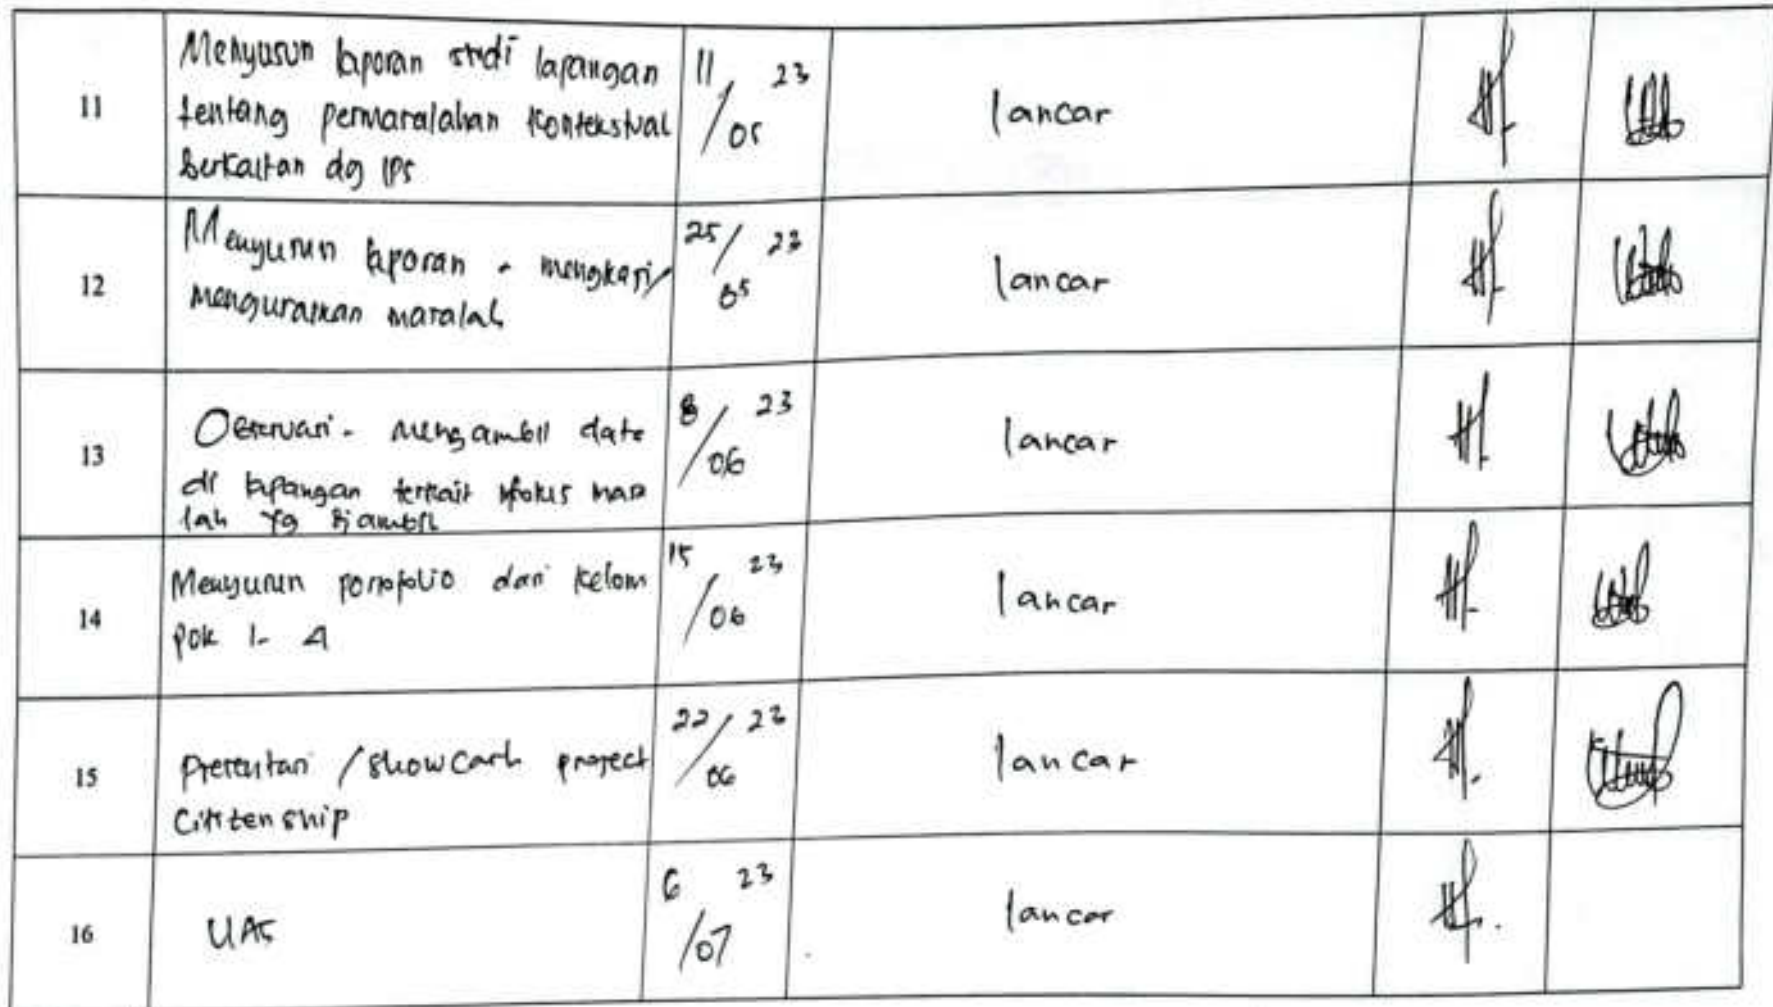 11
Menyusun laporan studi lapangan
tentang permasalahan kontekstual
berkaitan dg IPS
11/05 23
lancar
12
Menyusun laporan - mengkaji/
menguraikan masalah
25/05 23
lancar
13
Observasi - mengambil data
di lapangan terkait fokus masa
lah yg diambil
8/06 23
lancar
14
Menyusun portofolio dari kelom
pok 1- 4
15/06 23
lancar
15
Presentasi / showcase project
Citizenship
22/06 23
lancar
16
UAS
6/07 23
lancar